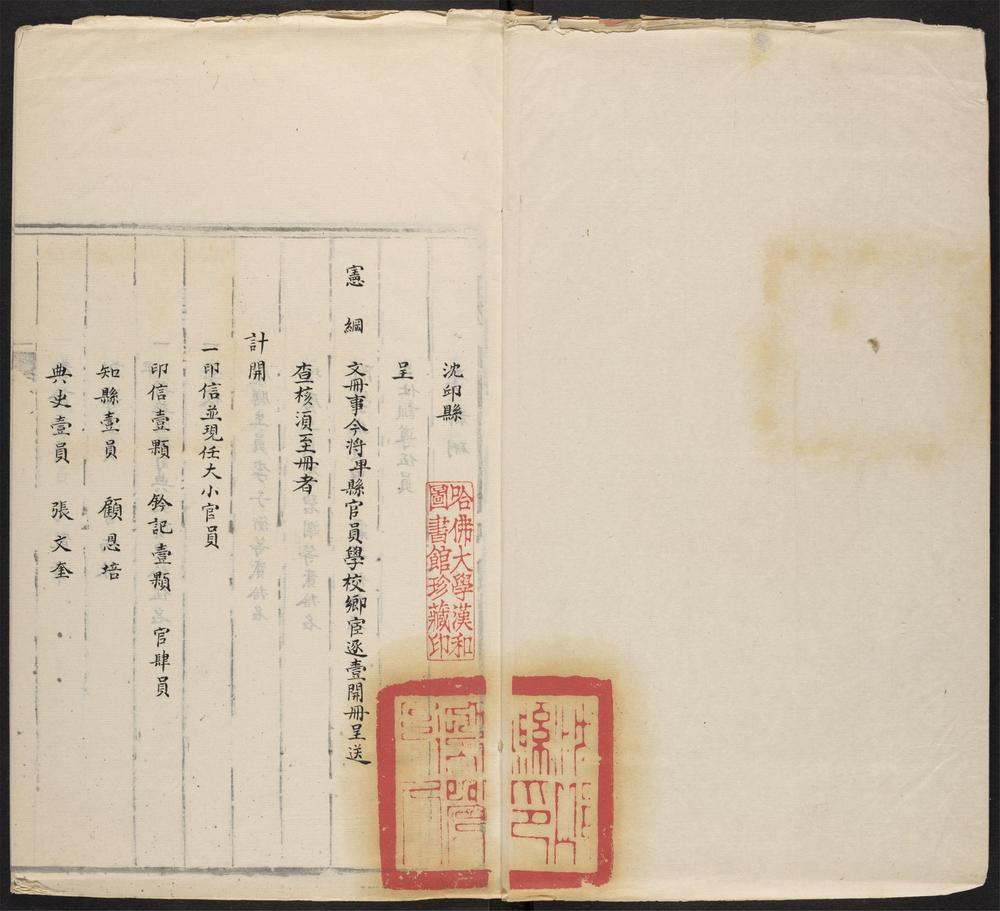 沈邱縣
呈
憲綱文冊事今將卑縣官員學校鄉宦逐壹開冊呈送
查核須至冊者
計開
一印信並現任大小官員
印信壹顆 鈐記壹顆 官肆員
知縣壹員 顧恩培
典史壹員 張文奎
哈佛大學漢和
圖書館珍藏印
縣印